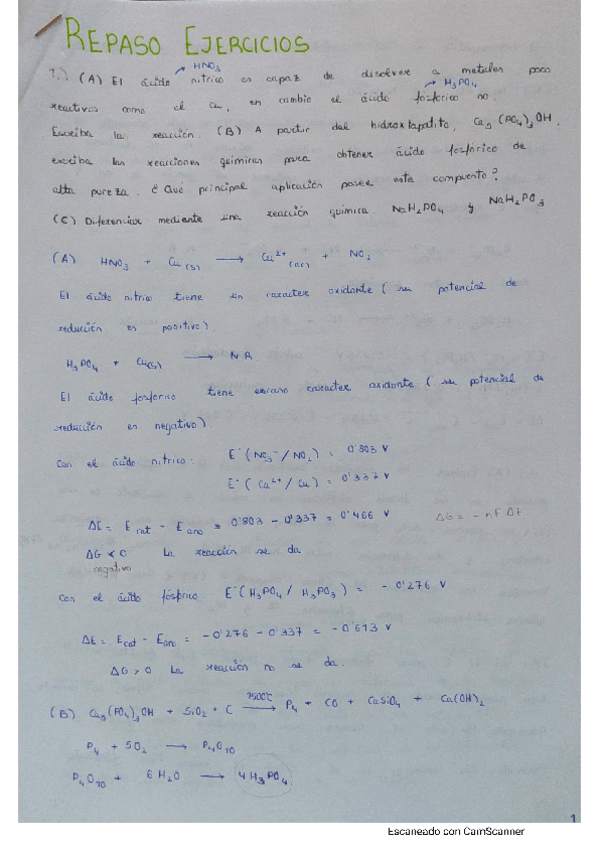 REPASO EJERCICIOS
1.) (A) El ácido nítrico es capaz de disolver a metales poco
HNO3
H3PO4
reactivos como el Cu, en cambio el ácido fosfórico no.
Escriba la reacción. (B) A partir del hidroxiapatito, Ca5(PO4)3OH,
escriba las reacciones químicas para obtener ácido fosfórico de
alta pureza. ¿Qué principal aplicación posee este compuesto?
(C) Diferenciar mediante una reacción química NaH2PO4 y NaH2PO3
(A) HNO3 + Cu(s) → Cu2+(ac) + NO2
El ácido nítrico tiene un caracter oxidante (su potencial de
reducción es positivo)
H3PO4 + Cu(s) → NR
El ácido fosfórico tiene escaso caracter oxidante (su potencial de
reducción es negativo)
Con el ácido nítrico: E°(NO3-/NO2) = 0'803 V
E°(Cu2+/Cu) = 0'337 V
ΔE = Ecat - Eano = 0'803 - 0'337 = 0'466 V ΔG = -nFΔE
ΔG < 0 La reacción se da
negativo
Con el ácido fósfrico: E°(H3PO4/H3PO3) = -0'276 V
ΔE = Ecat - Eano = -0'276 - 0'337 = -0'613 V
ΔG > 0 La reacción no se da.
(B) Ca5(PO4)3OH + SiO2 + C 1500°C → P4 + CO + CaSiO4 + Ca(OH)2
P4 + 5O2 → P4O10
P4O10 + 6H2O → 4H3PO4
1
Escaneado con CamScanner